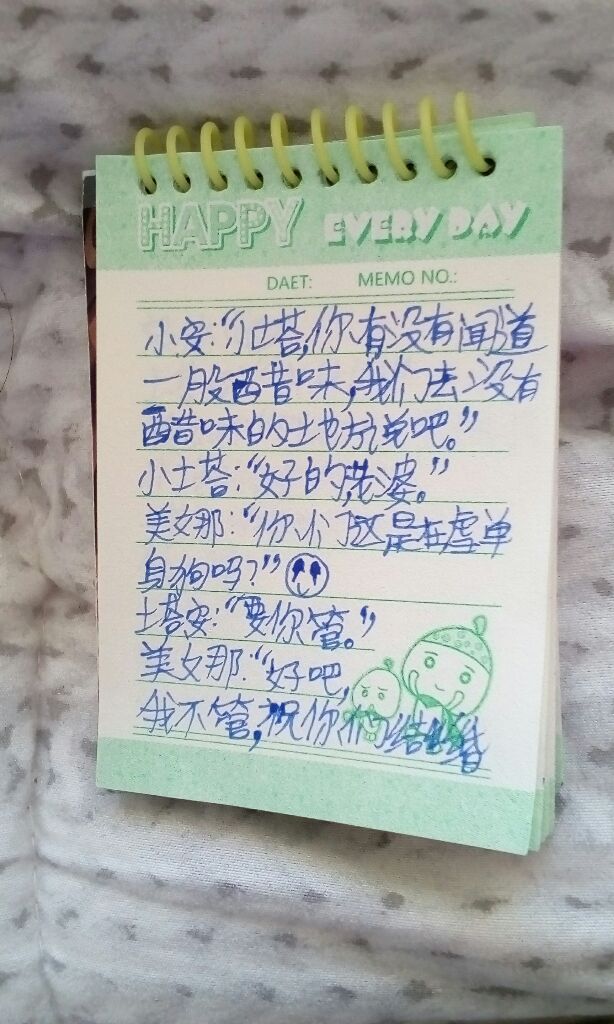 HAPPY EVERY DAY
DAET: MEMO NO.:
小安:“小土塔,你有没有闻道
一股醋味,我们去没有
醋味的土地方说吧。”
小土塔:“好的,老婆。”
美女那:“你们这是在虐单
身狗吗?”
土塔安:“要你管。”
美女那:“好吧,
我不管,祝你们结婚